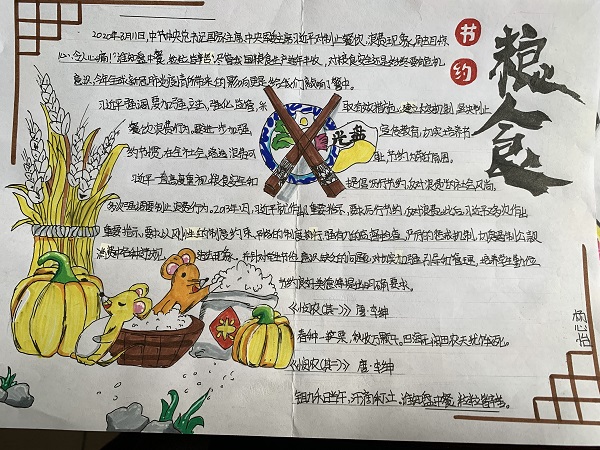 书
约
粮食
2020年8月11日,中共中央总书记国家主席中央军委主席习近平对制止餐饮浪费
心,令人心痛!谁知盘中餐,粒粒皆辛苦尽管我国粮食生产连年丰收,对粮食安全还是始终要有危机
意识,今年全球新冠肺炎疫情所带来的影响更是给我们敲响了警钟
习近平强调,要加强立法,强化监管,采 取有效措施,建立长效机制,坚决制止
餐饮浪费行为,要进一步加强 宣传教育,切实培养节
约习惯,在全社会 浪费可 耻节约 的氛围
习近平一直高度重视粮食安全和 提倡厉行节约,反对浪费的社会风尚,
多次强调要制止浪费行为。2013年1月,习近平就作出重要指示,要求厉行节约,反对浪费。此后,习近平又多次作出
重要指示,要求以刚性的制度约束、严格的制度执行、强有力的监督检查、严厉的惩戒机制,切实遏制公款
消费中各种违规 培养学生勤俭
节约良好美德等提出明确要求。
光盘
《悯农(其一)》唐·李绅
春种一粒粟,秋收万颗子。四海无闲田,农夫犹饿死。
《悯农(其二)》唐·李绅
锄禾日当午,汗滴禾下土。谁知盘中餐,粒粒皆辛苦。
米